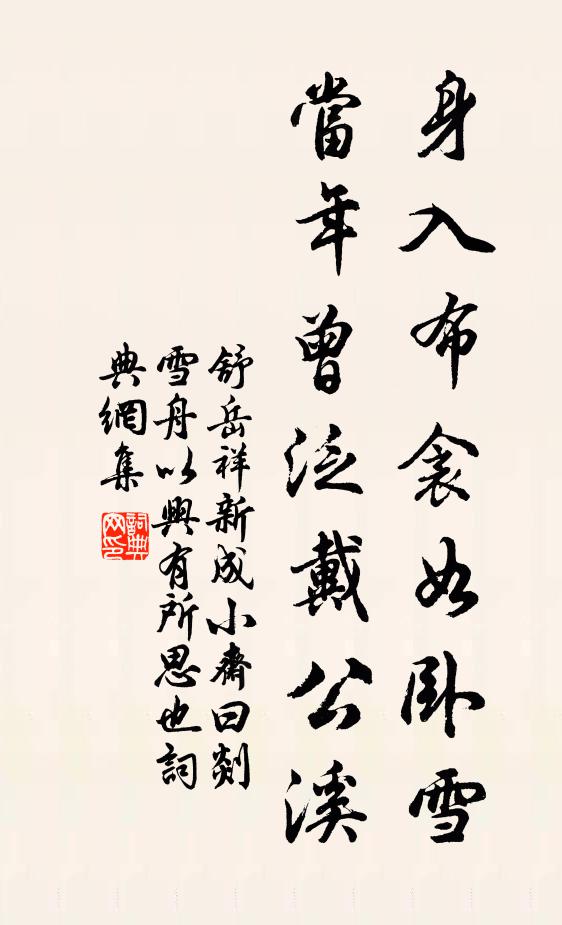 身入布衾如臥雪
當年曾泛戴公溪
舒岳祥新成小齋曰剡
雪舟以興有所思也詞
典網集
詞典
网印